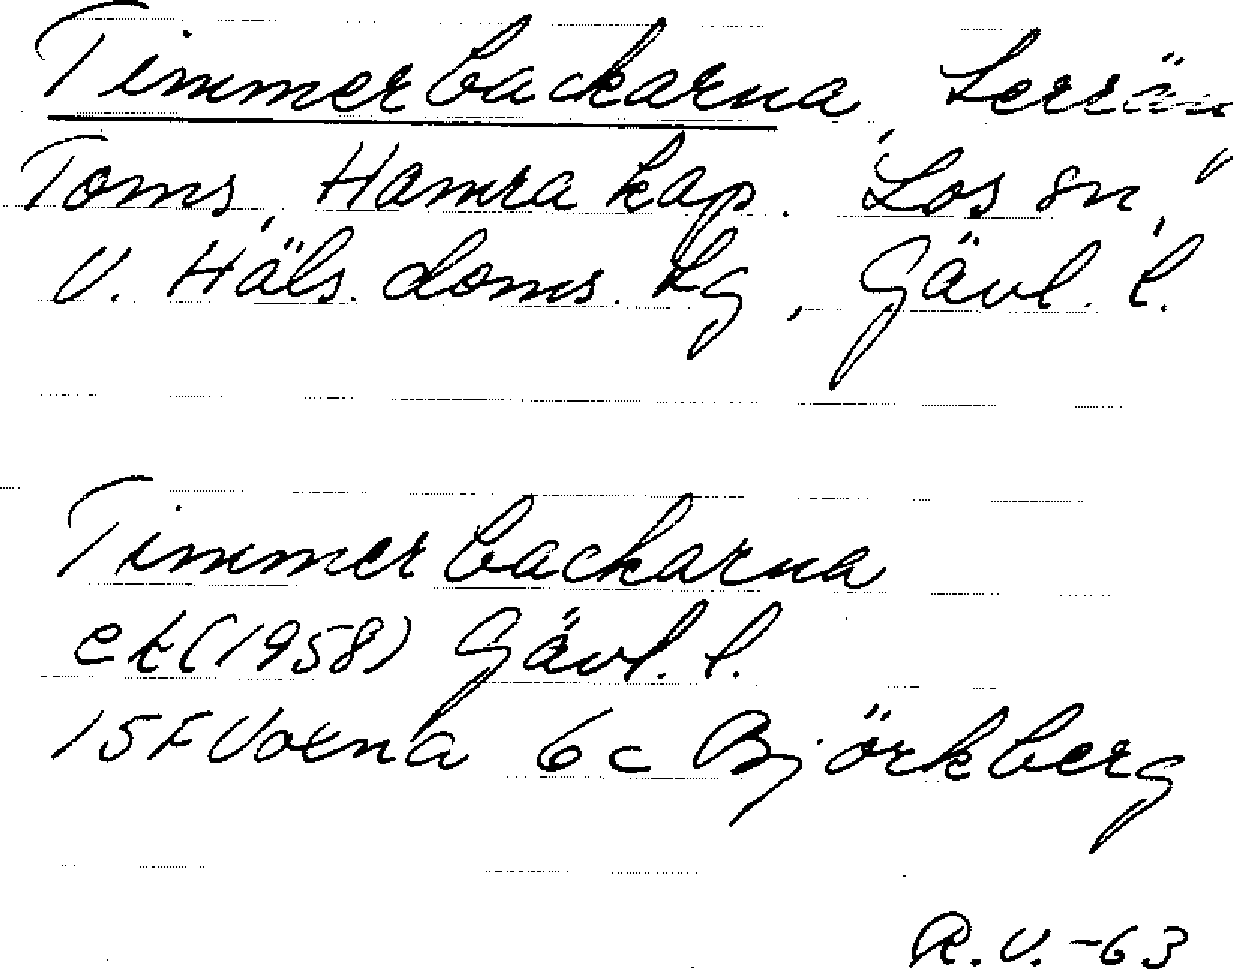 Timmerbackarna, terrän
Toms, Hamra kap. Los sn,
V. Häls. doms. Lg, Gävl. l.
Timmerbackarna
ek (1958) Gävl. l.
15F Voxna 6c Björkberg
R.V. -63